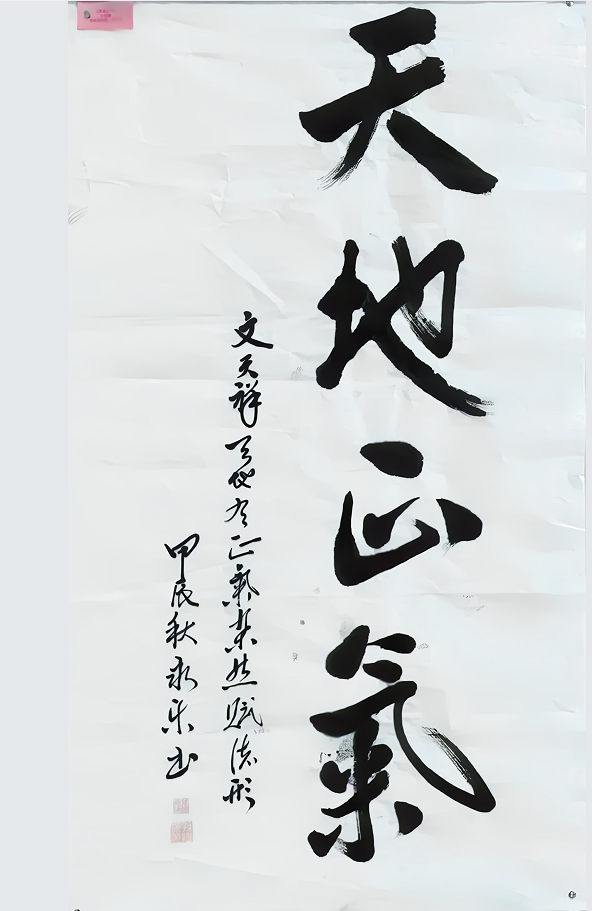 天地正氣
文天祥天地有正氣雜然賦流形
甲辰秋永樂書